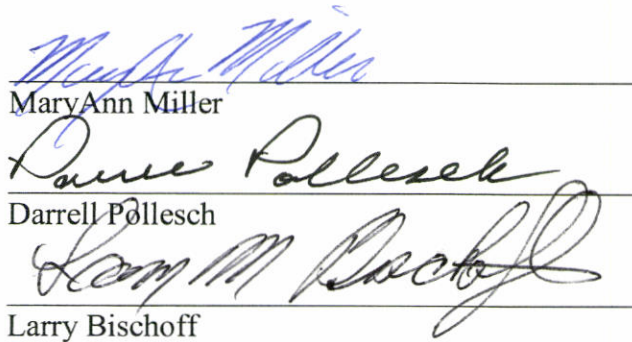 MaryAnn Miller
MaryAnn Miller
Darrell Pollesch
Darrell Pollesch
Larry M Bischoff
Larry Bischoff